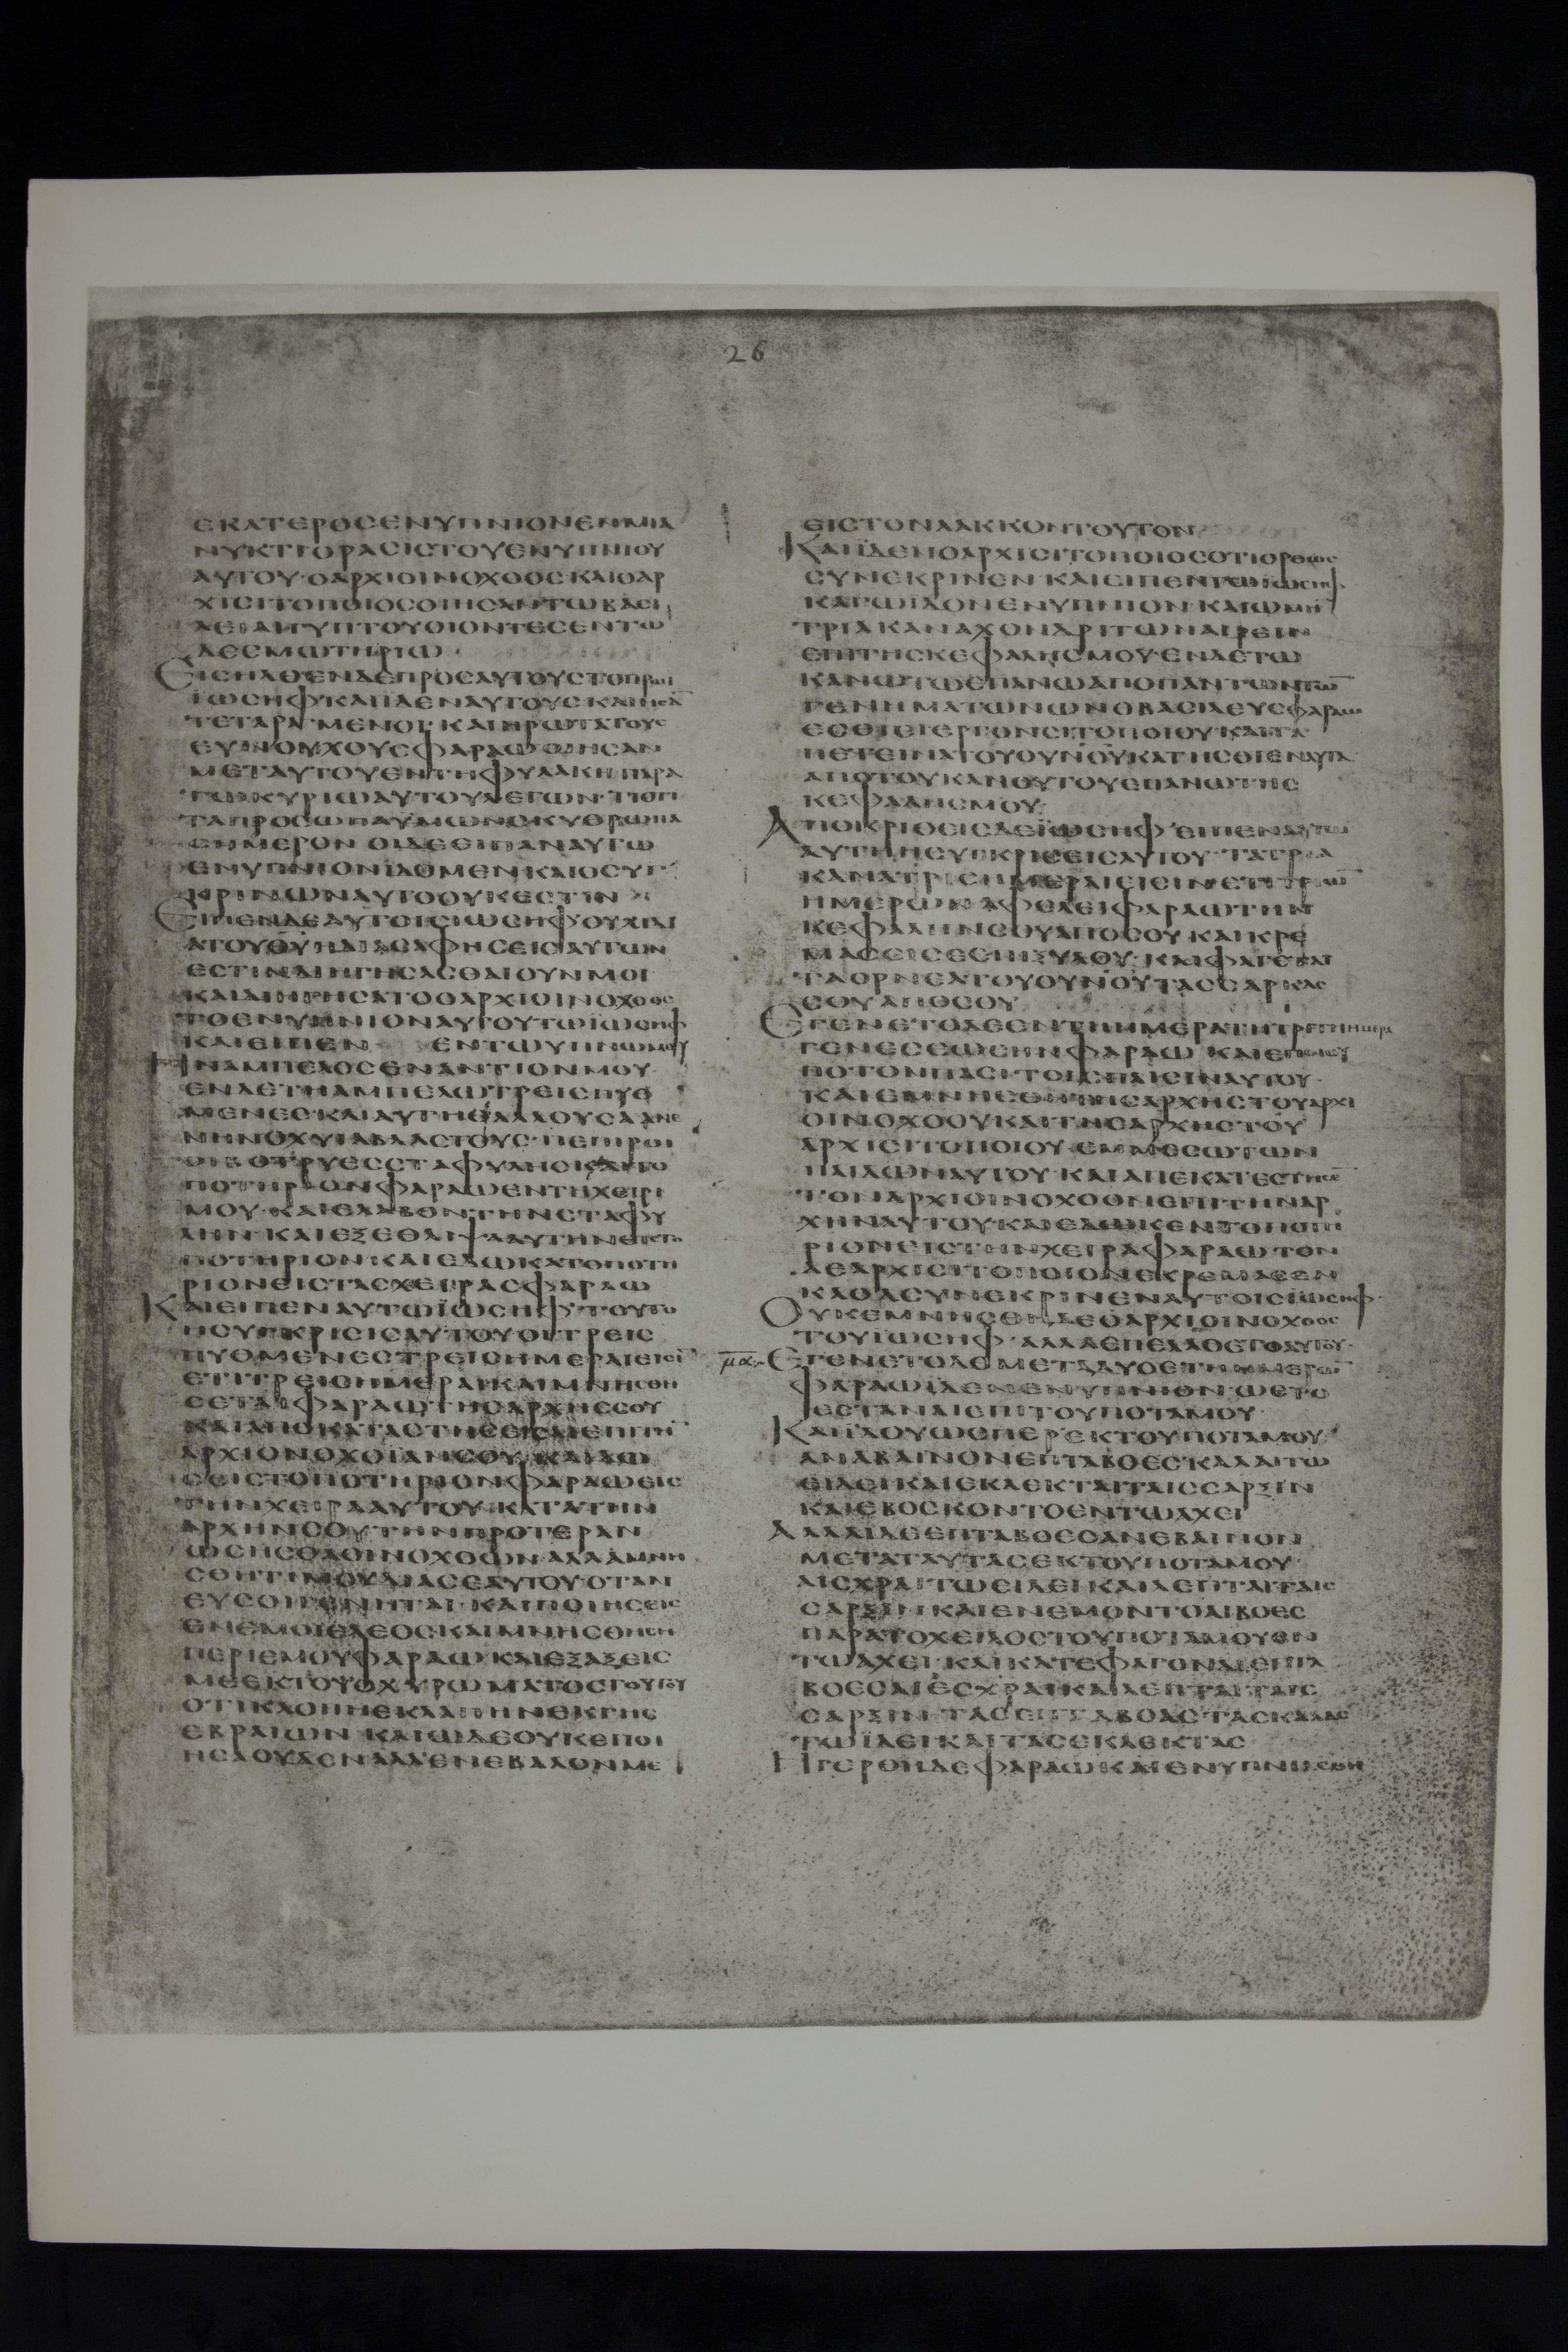 26
ΕΚΑΤΕΡΟΣΕΝΥΠΝΙΟΝΕΝΜΙΑ
ΝΥΚΤΙΟΡΑΣΙΣΤΟΥΕΝΥΠΝΙΟΥ
ΑΥΤΟΥ·ΟΑΡΧΙΟΙΝΟΧΟΟΣΚΑΙΟΑΡ
ΧΙΣΙΤΟΠΟΙΟΣΟΙΗΣΑΝΤΩΒΑΣΙ
ΛΕΙΑΙΓΥΠΤΟΥΟΙΟΝΤΕΣΕΝΤΩ
ΔΕΣΜΩΤΗΡΙΩ·
ΕΙΣΗΛΘΕΝΔΕΠΡΟΣΑΥΤΟΥΣΤΟΠΡΩΙ
ΙΩΣΗΦ·ΚΑΙΪΔΕΝΑΥΤΟΥΣΚΑΙΗΣΑ̅
ΤΕΤΑΡΑΓΜΕΝΟΙ·ΚΑΙΗΡΩΤΑΤΟΥΣ
ΕΥΝΟΥΧΟΥΣΦΑΡΑΩΟΙΗΣΑΝ
ΜΕΤΑΥΤΟΥΕΝΤΗΦΥΛΑΚΗΠΑΡΑ
ΤΩΚΥΡΙΩΑΥΤΟΥΛΕΓΩΝ·ΤΙΟΤΙ
ΤΑΠΡΟΣΩΠΑΥΜΩΝΣΚΥΘΡΩΠΑ
ΣΗΜΕΡΟΝ ΟΙΔΕΕΙΠΑΝΑΥΤΩ
ΕΝΥΠΝΙΟΝΪΔΟΜΕΝΚΑΙΟΣΥΓ
ΚΡΙΝΩΝΑΥΤΟΟΥΚΕΣΤΙΝ
ΕΙΠΕΝΔΕΑΥΤΟΙΣΙΩΣΗΦ·ΟΥΧΙΔΙ
ΑΤΟΥΘ̅Υ̅ΗΔΙΑΣΑΦΗΣΕΙΣΑΥΤΩΝ
ΕΣΤΙΝΔΙΗΓΗΣΑΣΘΑΙΟΥΝΜΟΙ
ΚΑΙΔΙΗΓΗΣΑΤΟΟΑΡΧΙΟΙΝΟΧΟΟΣ
ΤΟΕΝΥΠΝΙΟΝΑΥΤΟΥΤΩΪΩΣΗΦ
ΚΑΙΕΙΠΕΝ ΕΝΤΩΥΠΝΩΜΟΥ
ΗΝΑΜΠΕΛΟΣΕΝΑΝΤΙΟΝΜΟΥ·
ΕΝΔΕΤΗΑΜΠΕΛΩΤΡΕΙΣΠΥΘ
ΜΕΝΕΣ·ΚΑΙΑΥΤΗΘΑΛΛΟΥΣΑΑΝΕ
ΝΗΝΟΧΥΙΑΒΛΑΣΤΟΥΣ·ΠΕΠΙΡΟΙ
ΟΙΒΟΤΡΥΕΣΣΤΑΦΥΛΗΣΚΑΙΤΟ
ΠΟΤΗΡΙΟΝΦΑΡΑΩΕΝΤΗΧΕΙΡΙ
ΜΟΥ·ΚΑΙΕΛΑΒΟΝΤΗΝΣΤΑΦΥ
ΛΗΝΚΑΙΕΞΕΘΛΙΨΑΑΥΤΗΝΕΙΣΤΟ
ΠΟΤΗΡΙΟΝΚΑΙΕΔΩΚΑΤΟΠΟΤΗ
ΡΙΟΝΕΙΣΤΑΣΧΕΙΡΑΣΦΑΡΑΩ
ΚΑΙΕΙΠΕΝΑΥΤΩΪΩΣΗΦ·ΤΟΥΤΟ
ΗΣΥΓΚΡΙΣΙΣΑΥΤΟΥΟΙΤΡΕΙΣ
ΠΥΘΜΕΝΕΣΤΡΕΙΣΗΜΕΡΑΙΕΙΣΙ̅
ΕΤΙΤΡΕΙΣΗΜΕΡΑΙΚΑΙΜΝΗΣΘΗ
ΣΕΤΑΙΦΑΡΑΩΤΗΣΑΡΧΗΣΣΟΥ
ΚΑΙΑΠΟΚΑΤΑΣΤΗΣΕΙΣΑΙΕΠΙΤΗ̅
ΑΡΧΙΟΝΟΧΟΙΑΝΣΟΥ·ΚΑΙΔΩ
ΣΕΙΣΤΟΠΟΤΗΡΙΟΝΦΑΡΑΩΕΙΣ
ΤΗΝΧΕΙΡΑΑΥΤΟΥ·ΚΑΤΑΤΗΝ
ΑΡΧΗΝΣΟΥΤΗΝΠΡΟΤΕΡΑΝ
ΩΣΗΣΘΑΟΙΝΟΧΟΩΝ·ΑΛΛΑΜΝΗ
ΣΘΗΤΙΜΟΥΔΙΑΣΕΑΥΤΟΥ·ΟΤΑΝ
ΕΥΣΟΙΓΕΝΗΤΑΙ·ΚΑΙΠΟΙΗΣΕΙΣ
ΕΝΕΜΟΙΕΛΕΟΣΚΑΙΜΝΗΣΘΗΣΗ
ΠΕΡΙΕΜΟΥΦΑΡΑΩ·ΚΑΙΕΞΑΞΕΙΣ
ΜΕΕΚΤΟΥΟΧΥΡΩΜΑΤΟΣΤΟΥΤΟΥ
ΟΤΙΚΛΟΠΗΕΚΛΑΠΗΝΕΚΓΗΣ
ΕΒΡΑΙΩΝ·ΚΑΙΩΔΕΟΥΚΕΠΟΙ
ΗΣΑΟΥΔΕΝΑΛΛΕΝΕΒΑΛΟΝΜΕ
ΕΙΣΤΟΝΛΑΚΚΟΝΤΟΥΤΟΝ
ΚΑΙΪΔΕΝΟΑΡΧΙΣΙΤΟΠΟΙΟΣΟΤΙΟΡΘΩΣ
ΣΥΝΕΚΡΙΝΕΝ·ΚΑΙΕΙΠΕΝΤΩΪΩΣΗΦ·
ΚΑΓΩΪΔΟΝΕΝΥΠΝΙΟΝ·ΚΑΙΩΜΗ̅
ΤΡΙΑΚΑΝΑΧΟΝΔΡΙΤΩΝΑΙΡΕΙΝ
ΕΠΙΤΗΣΚΕΦΑΛΗΣΜΟΥ·ΕΝΔΕΤΩ
ΚΑΝΩΤΩΕΠΑΝΩΑΠΟΠΑΝΤΩΝΤΩ̅
ΓΕΝΗΜΑΤΩΝΩΝΟΒΑΣΙΛΕΥΣΦΑΡΑΩ
ΕΣΘΙΕΙΕΡΓΟΝΣΙΤΟΠΟΙΟΥ·ΚΑΙΤΑ
ΠΕΤΕΙΝΑΤΟΥΟΥΝΟΥΚΑΤΗΣΘΙΕΝΑΥΤΑ
ΑΠΟΤΟΥΚΑΝΟΥΤΟΥΕΠΑΝΩΤΗΣ
ΚΕΦΑΛΗΣΜΟΥ·
ΑΠΟΚΡΙΘΕΙΣΔΕΪΩΣΗΦ·ΕΙΠΕΝΑΥΤΩ
ΑΥΤΗΗΣΥΓΚΡΙΣΕΙΣΑΥΤΟΥ·ΤΑΤΡΙΑ
ΚΑΝΑΤΡΙΣΗΜΕΡΑΙΕΙΣΙΝ·ΕΤΙΤΡΙΩ̅
ΗΜΕΡΩΝΑΦΕΛΕΙΦΑΡΑΩΤΗΝ
ΚΕΦΑΛΗΝΣΟΥΑΠΟΣΟΥ·ΚΑΙΚΡΕ
ΜΑΣΕΙΣΕΕΠΙΞΥΛΟΥ·ΚΑΙΦΑΓΕΤΑΙ
ΤΑΟΡΝΕΑΤΟΥΟΥΝΟΥΤΑΣΣΑΡΚΑΣ
ΣΟΥΑΠΟΣΟΥ
ΕΓΕΝΕΤΟΔΕΕΝΤΗΗΜΕΡΑΤΗΤΡΙΤΗΗΜΕΡΑ
ΓΕΝΕΣΕΩΣΗΝΦΑΡΑΩ·ΚΑΙΕΠΟΙΕΙ
ΠΟΤΟΝΠΑΣΙΤΟΙΣΠΑΙΣΙΝΑΥΤΟΥ·
ΚΑΙΕΜΝΗΣΘΗΤΗΣΑΡΧΗΣΤΟΥΑΡΧΙ
ΟΙΝΟΧΟΟΥΚΑΙΤΗΣΑΡΧΗΣΤΟΥ
ΑΡΧΙΣΙΤΟΠΟΙΟΥ·ΕΜΜΕΣΩΤΩΝ
ΠΑΙΔΩΝΑΥΤΟΥ·ΚΑΙΑΠΕΚΑΤΕΣΤΗΣΕ̅
ΤΟΝΑΡΧΙΟΙΝΟΧΟΟΝΕΠΙΤΗΝΑΡ
ΧΗΝΑΥΤΟΥΚΑΙΕΔΩΚΕΝΤΟΠΟΤΗ
ΡΙΟΝΕΙΣΤΗΝΧΕΙΡΑΦΑΡΑΩ·ΤΟΝ
ΔΕΑΡΧΙΣΙΤΟΠΟΙΟΝΕΚΡΕΜΑΣΕΝ
ΚΑΘΑΣΥΝΕΚΡΙΝΕΝΑΥΤΟΙΣΪΩΣΗΦ·
ΟΥΚΕΜΝΗΣΘΗΔΕΟΑΡΧΙΟΙΝΟΧΟΟΣ
ΤΟΥΪΩΣΗΦ·ΑΛΛΑΕΠΕΛΑΘΕΤΟΑΥΤΟΥ·
μα ΕΓΕΝΕΤΟΔΕΜΕΤΑΔΥΟΕΤΗΗΜΕΡΩ̅
ΦΑΡΑΩΪΔΕΝΕΝΥΠΝΙΟΝ·ΩΕΤΟ
ΕΣΤΑΝΑΙΕΠΙΤΟΥΠΟΤΑΜΟΥ·
ΚΑΙΪΔΟΥΩΣΠΕΡΕΚΤΟΥΠΟΤΑΜΟΥ
ΑΝΑΒΑΙΝΟΝΕΠΤΑΒΟΕΣΚΑΛΑΙΤΩ
ΕΙΔΕΙΚΑΙΕΚΛΕΚΤΑΙΤΑΙΣΣΑΡΞΙΝ
ΚΑΙΕΒΟΣΚΟΝΤΟΕΝΤΩΑΧΕΙ
ΑΛΛΑΙΔΕΕΠΤΑΒΟΕΣΑΝΕΒΑΙΝΟΝ
ΜΕΤΑΤΑΥΤΑΣΕΚΤΟΥΠΟΤΑΜΟΥ·
ΑΙΣΧΡΑΙΤΩΕΙΔΕΙΚΑΙΛΕΠΤΑΙΤΑΙΣ
ΣΑΡΞΙΝΚΑΙΕΝΕΜΟΝΤΟΑΙΒΟΕΣ
ΠΑΡΑΤΟΧΕΙΛΟΣΤΟΥΠΟΤΑΜΟΥΕΝ
ΤΩΑΧΕΙ·ΚΑΙΚΑΤΕΦΑΓΟΝΑΙΕΠΤΑ
ΒΟΕΣΑΙΕΣΧΡΑΙΚΑΙΛΕΠΤΑΙΤΑΙΣ
ΣΑΡΞΙΝ·ΤΑΣΕΠΤΑΒΟΑΣΤΑΣΚΑΛΑΣ
ΤΩΙΔΕΙΚΑΙΤΑΣΕΚΛΕΚΤΑΣ
ΗΓΕΡΘΗΔΕΦΑΡΑΩΚΑΙΕΝΥΠΝΙΑΣΘΗ